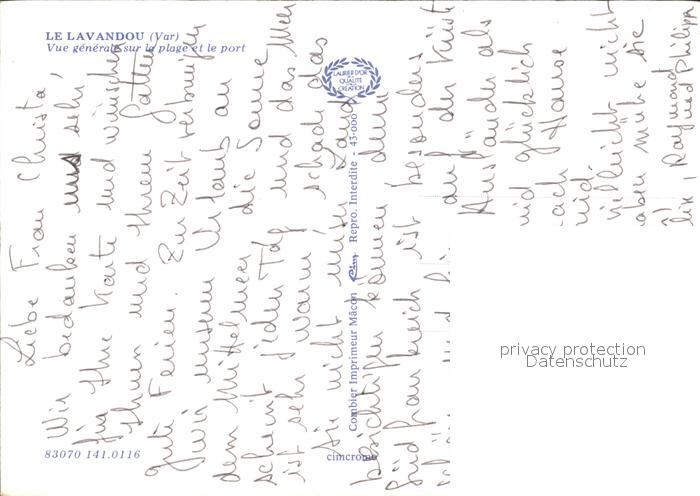 LE LAVANDOU (Var)
Vue générale sur la plage et le port
LAURIER D'OR
QUALITÉ
CRÉATION
Liebe Frau Christa,
Wir bedanken uns sehr,
für Ihre Karte und wünschen
Ihnen und Ihrem Gatten
gute Ferien. Zur Zeit verbringen
wir unseren Urlaub an
dem Mittelmeer die Sonne
scheint jeden Tag und das Meer
ist sehr warm, schade das
Sie nicht unser Land
besichtigen können denn
Süd frankreich ist besonders
auf der Küste
Ausländer als
und glücklich
nach Hause
und
vielleicht nicht
haben mühe sie
Raymond
und Philippe
Combier Imprimeur Mâcon Cim Repro. Interdite - 43-000
83070 141.0116
cimcrome
privacy protection
Datenschutz